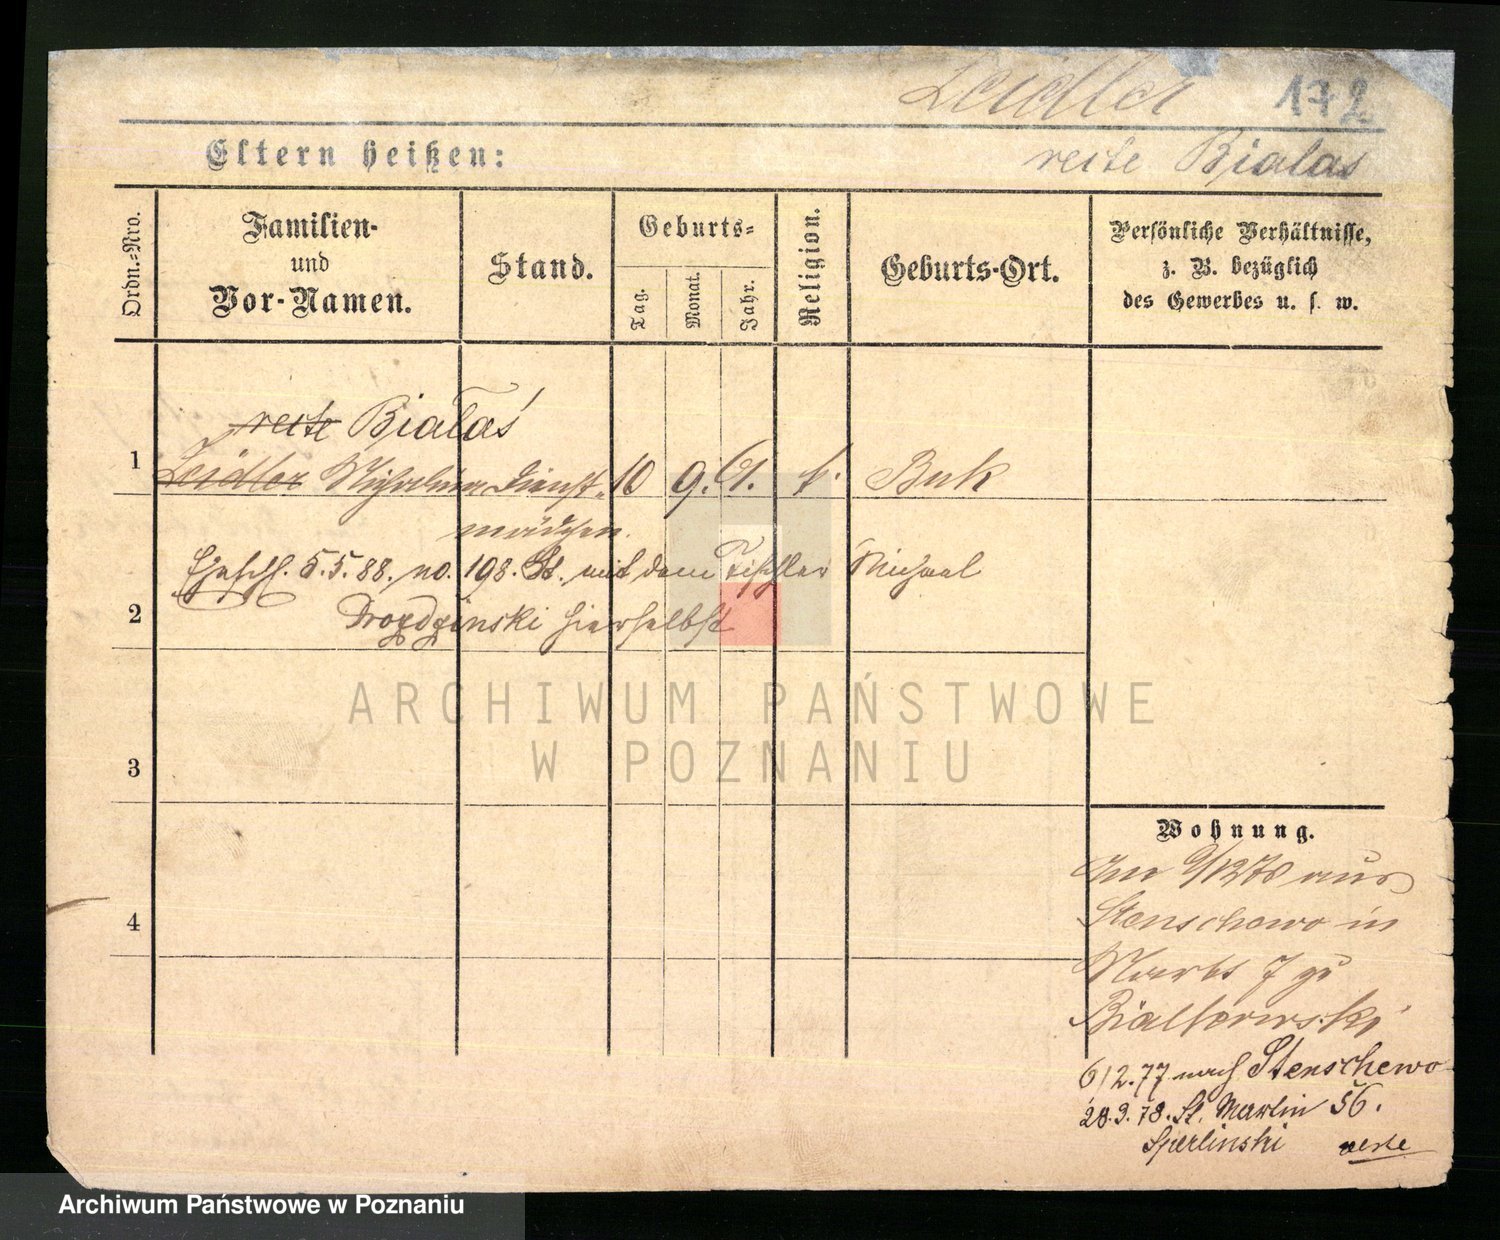 Leidler 172
Eltern heißen:
recte Bialas
Ordn.-Nro.
Familien-
und
Vor-Namen.
Stand.
Geburts-
Tag.
Monat.
Jahr.
Religion.
Geburts-Ort.
Persönliche Verhältnisse,
z. B. bezüglich
des Gewerbes u. s. w.
recte Bialas
1 Leidler Dienst- 10 9. 61. k. Buk
mädchen.
Ehesch. 5.5.88. no. 198. St. mit dem Tischler Michael
2 Drozdzinski hierselbst
ARCHIWUM PAŃSTWOWE
W POZNANIU
3
4
Wohnung.
aus
Stenschewo in
Markt 7 zu
Bialkowski
6/2.77 nach Stenschewo
28.9.78. St. Martin 56.
Sperlinski recte
Archiwum Państwowe w Poznaniu